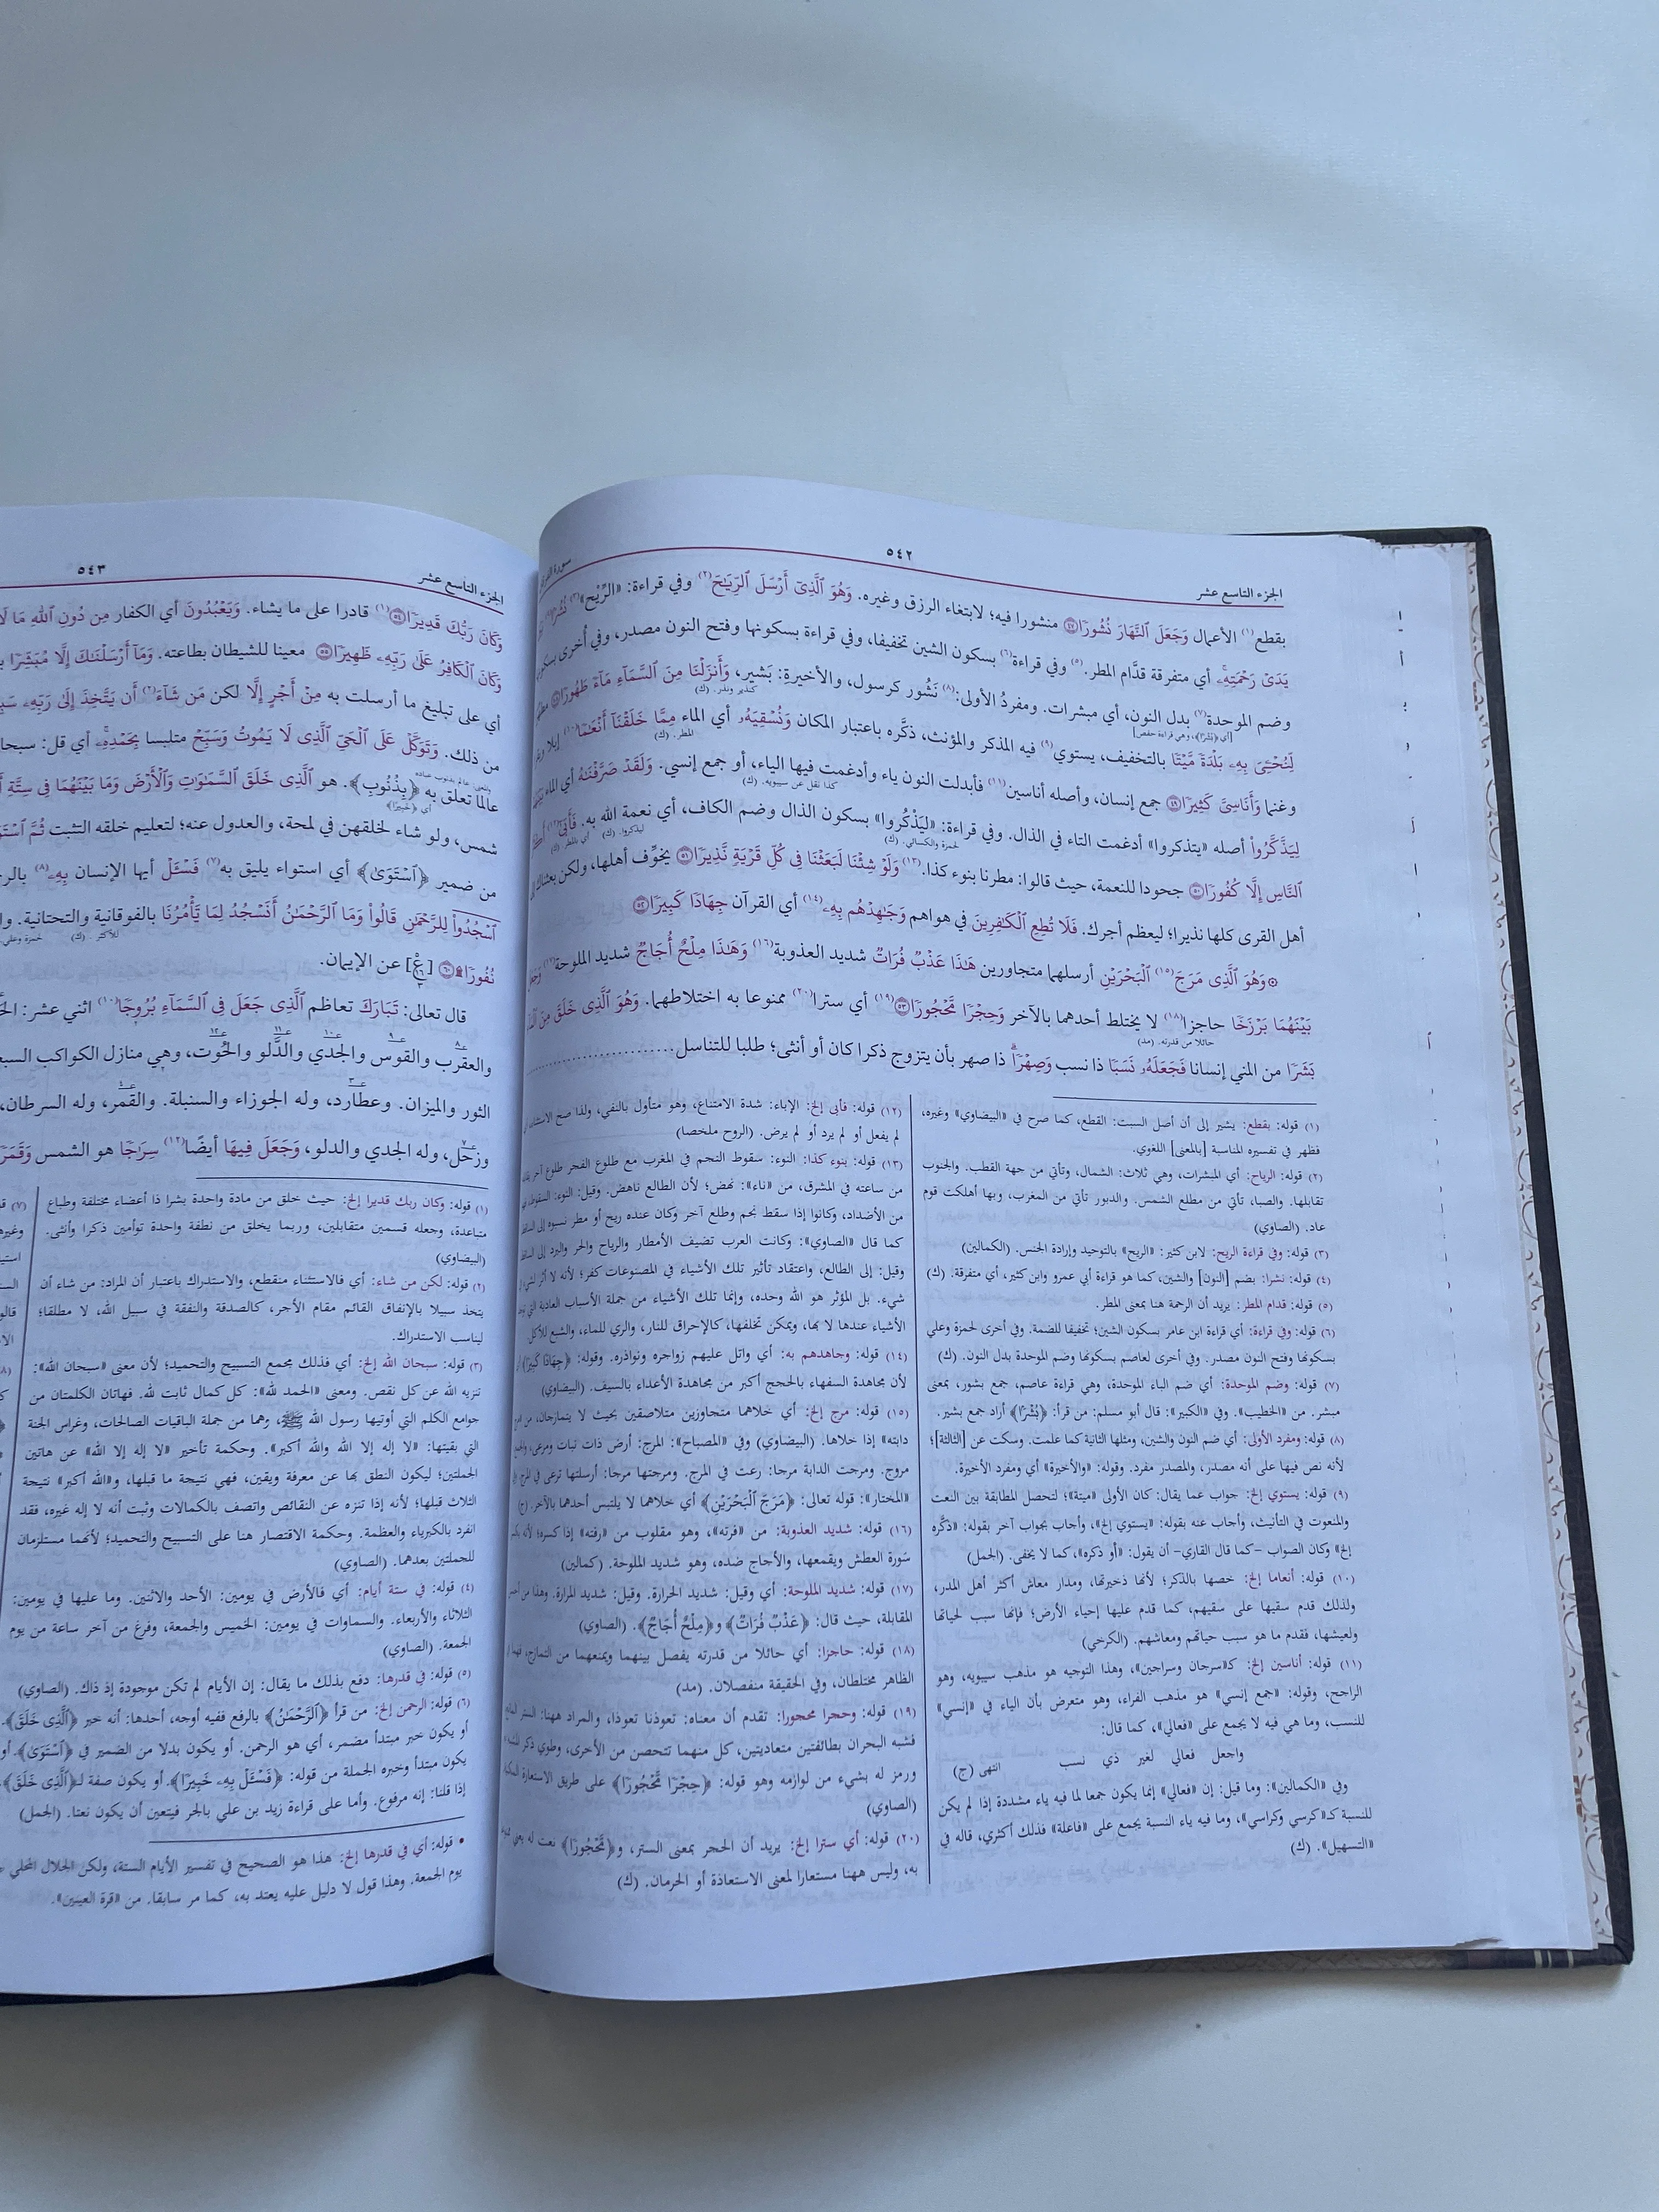 الجزء التاسع عشر
٥٤٢
بقطع(١) الأعمال وَجَعَلَ ٱلنَّهَارَ نُشُورًا ٤٧ منشورا فيه؛ لابتغاء الرزق وغيره. وَهُوَ ٱلَّذِىٓ أَرْسَلَ ٱلرِّيَـٰحَ(٢) وفي قراءة: «الرِّيْح»(٣) نُشُرًۢا
يَدَىْ رَحْمَتِهِۦ أي متفرقة قدَّام المطر.(٥) وفي قراءة(٦) بسكون الشين تخفيفا، وفي قراءة بسكونها وفتح النون مصدر، وفي أُخرى بسكونها
وضم الموحدة(٧) بدل النون، أي مبشرات. ومفردُ الأولى:(٨) نَشُور كرسول، والأخيرة: بَشير، وَأَنزَلْنَا مِنَ ٱلسَّمَآءِ مَآءً طَهُورًا
[أي ﴿بُشْرًا﴾، وهي قراءة حفص]
كنذير ونذر. (ك)
لِّنُحْـِۧىَ بِهِۦ بَلْدَةً مَّيْتًا بالتخفيف، يستوي(٩) فيه المذكر والمؤنث، ذكَّره باعتبار المكان وَنُسْقِيَهُۥ أي الماء مِمَّا خَلَقْنَآ أَنْعَـٰمًا(١٠) إبلا
المطر. (ك)
وغنما وَأَنَاسِىَّ كَثِيرًا ٤٩ جمع إنسان، وأصله أناسين(١١) فأبدلت النون ياء وأدغمت فيها الياء، أو جمع إنسي. وَلَقَدْ صَرَّفْنَـٰهُ أي الماء
كذا نقل عن سيبويه. (ك)
لِيَذَّكَّرُوا۟ أصله «يتذكروا» أدغمت التاء في الذال. وفي قراءة: «لِيَذْكُروا» بسكون الذال وضم الكاف، أي نعمة الله به. فَأَبَىٰٓ(١٢)
لحمزة والكسائي. (ك)
ليذكروا. (ك)
أي بالمطر. (ك)
ٱلنَّاسِ إِلَّا كُفُورًا ٥٠ جحودا للنعمة، حيث قالوا: مطرنا بنوء كذا.(١٣) وَلَوْ شِئْنَا لَبَعَثْنَا فِى كُلِّ قَرْيَةٍ نَّذِيرًا ٥١ يخوِّف أهلها، ولكن بعثناك
أهل القرى كلها نذيرا؛ ليعظم أجرك. فَلَا تُطِعِ ٱلْكَـٰفِرِينَ في هواهم وَجَـٰهِدْهُم بِهِۦ(١٤) أي القرآن جِهَادًا كَبِيرًا ٥٢
۞ وَهُوَ ٱلَّذِى مَرَجَ(١٥) ٱلْبَحْرَيْنِ أرسلهما متجاورين هَـٰذَا عَذْبٌ فُرَاتٌ شديد العذوبة(١٦) وَهَـٰذَا مِلْحٌ أُجَاجٌ شديد الملوحة(١٧) وَجَعَلَ
بَيْنَهُمَا بَرْزَخًا حاجزا(١٨) لا يختلط أحدهما بالآخر وَحِجْرًا مَّحْجُورًا ٥٣(١٩) أي سترا(٢٠) ممنوعا به اختلاطهما. وَهُوَ ٱلَّذِى خَلَقَ مِنَ
حائلا من قدرته. (مد)
بَشَرًا من المني إنسانا فَجَعَلَهُۥ نَسَبًا ذا نسب وَصِهْرًا ذا صهر بأن يتزوج ذكرا كان أو أنثى؛ طلبا للتناسل
(١) قوله: بقطع: يشير إلى أن أصل السبت: القطع، كما صرح في «البيضاوي» وغيره،
فظهر في تفسيره المناسبة [بالمعنى] اللغوي.
(٢) قوله: الرياح: أي المبشرات، وهي ثلاث: الشمال، وتأتي من جهة القطب. والجنوب
تقابلها. والصبا، تأتي من مطلع الشمس. والدبور تأتي من المغرب، وبها أهلكت قوم
عاد. (الصاوي)
(٣) قوله: وفي قراءة الريح: لابن كثير: «الريح» بالتوحيد وإرادة الجنس. (الكمالين)
(٤) قوله: نشرا: بضم [النون] والشين، كما هو قراءة أبي عمرو وابن كثير، أي متفرقة. (ك)
(٥) قوله: قدام المطر: يريد أن الرحمة هنا بمعنى المطر.
(٦) قوله: وفي قراءة: أي قراءة ابن عامر بسكون الشين؛ تخفيفا للضمة. وفي أخرى لحمزة وعلي
بسكونها وفتح النون مصدر. وفي أخرى لعاصم بسكونها وضم الموحدة بدل النون. (ك)
(٧) قوله: وضم الموحدة: أي ضم الباء الموحدة، وهي قراءة عاصم، جمع بشور، بمعنى
مبشر. من «الخطيب». وفي «الكبير»: قال أبو مسلم: من قرأ: ﴿بُشْرًا﴾ أراد جمع بشير.
(٨) قوله: ومفرد الأولى: أي ضم النون والشين، ومثلها الثانية كما علمت. وسكت عن [الثالثة]؛
لأنه نص فيها على أنه مصدر، والمصدر مفرد. وقوله: «والأخيرة» أي ومفرد الأخيرة.
(٩) قوله: يستوي إلخ: جواب عما يقال: كان الأولى «ميتة»؛ لتحصل المطابقة بين النعت
والمنعوت في التأنيث، وأجاب عنه بقوله: «يستوي إلخ»، وأجاب بجواب آخر بقوله: «ذكّره
إلخ» وكان الصواب –كما قال القاري– أن يقول: «أو ذكره»، كما لا يخفى. (الجمل)
(١٠) قوله: أنعاما إلخ: خصها بالذكر؛ لأنها ذخيرتها، ومدار معاش أكثر أهل المدر،
ولذلك قدم سقيها على سقيهم، كما قدم عليها إحياء الأرض؛ فإنها سبب لحياتها
ولعيشها، فقدم ما هو سبب حياتهم ومعاشهم. (الكرخي)
(١١) قوله: أناسين إلخ: كـ«سرحان وسراحين»، وهذا التوجيه هو مذهب سيبويه، وهو
الراجح، وقوله: «جمع إنسي» هو مذهب الفراء، وهو متعرض بأن الياء في «إنسي»
للنسب، وما هي فيه لا يجمع على «فعالي»، كما قال:
واجعل فعالي لغير ذي نسب انتهى (ج)
وفي «الكمالين»: وما قيل: إن «فعالي» إنما يكون جمعا لما فيه ياء مشددة إذا لم يكن
للنسبة كـ«كرسي وكراسي»، وما فيه ياء النسبة يجمع على «فاعلة» فذلك أكثري، قاله في
«التسهيل». (ك)
(١٢) قوله: فأبى إلخ: الإباء: شدة الامتناع، وهو متأول بالنفي، ولذا صح الاستثناء
لم يفعل أو لم يرد أو لم يرض. (الروح ملخصا)
(١٣) قوله: بنوء كذا: النوء: سقوط النجم في المغرب مع طلوع الفجر طلوع آخر
من ساعته في المشرق، من «ناء»: نهض؛ لأن الطالع ناهض. وقيل: النوء: السقوط
من الأضداد، وكانوا إذا سقط نجم وطلع آخر وكان عنده ريح أو مطر نسبوه إلى
كما قال «الصاوي»: وكانت العرب تضيف الأمطار والرياح والحر والبرد إلى
وقيل: إلى الطالع، واعتقاد تأثير تلك الأشياء في المصنوعات كفر؛ لأنه لا أثر
شيء. بل المؤثر هو الله وحده، وإنما تلك الأشياء من جملة الأسباب العادية
الأشياء عندها لا بها، ويمكن تخلفها، كالإحراق للنار، والري للماء، والشبع للأكل.
(١٤) قوله: وجاهدهم به: أي واتل عليهم زواجره ونواذره. وقوله: ﴿جِهَادًا كَبِيرًا﴾
لأن مجاهدة السفهاء بالحجج أكبر من مجاهدة الأعداء بالسيف. (البيضاوي)
(١٥) قوله: مرج إلخ: أي خلاهما متجاوزين متلاصقين بحيث لا يتمازجان، من
دابته» إذا خلاها. (البيضاوي) وفي «المصباح»: المرج: أرض ذات نبات ومرعى،
مروج. ومرجت الدابة مرجا: رعت في المرج. ومرجتها مرجا: أرسلتها ترعى في المرج.
«المختار»: قوله تعالى: ﴿مَرَجَ ٱلْبَحْرَيْنِ﴾ أي خلاهما لا يلتبس أحدهما بالآخر. (ج)
(١٦) قوله: شديد العذوبة: من «فرته»، وهو مقلوب من «رفته» إذا كسره؛ لأنه
سَورة العطش ويقمعها، والأجاج ضده، وهو شديد الملوحة. (كمالين)
(١٧) قوله: شديد الملوحة: أي وقيل: شديد الحرارة. وقيل: شديد المرارة. وهذا من
المقابلة، حيث قال: ﴿عَذْبٌ فُرَاتٌ﴾ و﴿مِلْحٌ أُجَاجٌ﴾. (الصاوي)
(١٨) قوله: حاجزا: أي حائلا من قدرته يفصل بينهما ويمنعهما من التمازج،
الظاهر مختلطان، وفي الحقيقة منفصلان. (مد)
(١٩) قوله: وحجرا محجورا: تقدم أن معناه: تعوذنا تعوذا، والمراد ههنا: الستر
فشبه البحران بطائفتين متعاديتين، كل منهما تتحصن من الأخرى، وطوي ذكر
ورمز له بشيء من لوازمه وهو قوله: ﴿حِجْرًا مَّحْجُورًا﴾ على طريق الاستعارة
(الصاوي)
(٢٠) قوله: أي سترا إلخ: يريد أن الحجر بمعنى الستر، و﴿مَّحْجُورًا﴾ نعت له
به، وليس ههنا مستعارا لمعنى الاستعاذة أو الحرمان. (ك)
الجزء التاسع عشر
٥٤٣
وَكَانَ رَبُّكَ قَدِيرًا ٥٤(١) قادرا على ما يشاء. وَيَعْبُدُونَ أي الكفار مِن دُونِ ٱللَّهِ مَا لَا
وَكَانَ ٱلْكَافِرُ عَلَىٰ رَبِّهِۦ ظَهِيرًا ٥٥ معينا للشيطان بطاعته. وَمَآ أَرْسَلْنَـٰكَ إِلَّا مُبَشِّرًا
أي على تبليغ ما أرسلت به مِنْ أَجْرٍ إِلَّا لكن مَن شَآءَ(٢) أَن يَتَّخِذَ إِلَىٰ رَبِّهِۦ
من ذلك. وَتَوَكَّلْ عَلَى ٱلْحَىِّ ٱلَّذِى لَا يَمُوتُ وَسَبِّحْ متلبسا بِحَمْدِهِۦ أي قل: سبحان
عالما تعلق به ﴿بِذُنُوبِ﴾. هو ٱلَّذِى خَلَقَ ٱلسَّمَـٰوَٰتِ وَٱلْأَرْضَ وَمَا بَيْنَهُمَا فِى سِتَّةِ
أي ﴿خَبِيرًا﴾
شمس، ولو شاء لخلقهن في لمحة، والعدول عنه؛ لتعليم خلقه التثبت ثُمَّ ٱسْتَوَىٰ
من ضمير ﴿ٱسْتَوَىٰ﴾ أي استواء يليق به(٧) فَسْـَٔلْ أيها الإنسان بِهِۦ(٨)
ٱسْجُدُوا۟ لِلرَّحْمَـٰنِ قَالُوا۟ وَمَا ٱلرَّحْمَـٰنُ أَنَسْجُدُ لِمَا تَأْمُرُنَا بالفوقانية والتحتانية.
للأكثر. (ك)
حمزة وعلي.
نُفُورًا ٦٠ عن الإيمان.
قال تعالى: تَبَارَكَ تعاظم ٱلَّذِى جَعَلَ فِى ٱلسَّمَآءِ بُرُوجًا(١٠) اثني عشر:
والعقرب والقوس والجدي والدَّلو والحُوت، وهي منازل الكواكب
الثور والميزان. وعطارد، وله الجوزاء والسنبلة. والقمر، وله السرطان،
وزحل، وله الجدي والدلو، وَجَعَلَ فِيهَا أيضًا(١٢) سِرَٰجًا هو الشمس وَقَمَرًا
(١) قوله: وكان ربك قديرا إلخ: حيث خلق من مادة واحدة بشرا ذا أعضاء مختلفة وطباع
متباعدة، وجعله قسمين متقابلين، وربما يخلق من نطفة واحدة توأمين ذكرا وأنثى.
(البيضاوي)
(٢) قوله: لكن من شاء: أي فالاستثناء منقطع، والاستدراك باعتبار أن المراد: من شاء أن
يتخذ سبيلا بالإنفاق القائم مقام الأجر، كالصدقة والنفقة في سبيل الله، لا مطلقا؛
ليناسب الاستدراك.
(٣) قوله: سبحان الله إلخ: أي فذلك مجمع التسبيح والتحميد؛ لأن معنى «سبحان الله»:
تنزيه الله عن كل نقص. ومعنى «الحمد لله»: كل كمال ثابت لله. فهاتان الكلمتان من
جوامع الكلم التي أوتيها رسول الله ﷺ، وهما من جملة الباقيات الصالحات، وغراس الجنة
التي بقيتها: «لا إله إلا الله والله أكبر». وحكمة تأخير «لا إله إلا الله» عن هاتين
الجملتين؛ ليكون النطق بها عن معرفة ويقين، فهي نتيجة ما قبلها، و«الله أكبر» نتيجة
الثلاث قبلها؛ لأنه إذا تنزه عن النقائص واتصف بالكمالات وثبت أنه لا إله غيره، فقد
انفرد بالكبرياء والعظمة. وحكمة الاقتصار هنا على التسبيح والتحميد؛ لأنهما مستلزمان
للجملتين بعدهما. (الصاوي)
(٤) قوله: في ستة أيام: أي فالأرض في يومين: الأحد والاثنين. وما عليها في يومين:
الثلاثاء والأربعاء. والسماوات في يومين: الخميس والجمعة، وفرغ من آخر ساعة من يوم
الجمعة. (الصاوي)
(٥) قوله: في قدرها: دفع بذلك ما يقال: إن الأيام لم تكن موجودة إذ ذاك. (الصاوي)
(٦) قوله: الرحمن إلخ: من قرأ ﴿ٱلرَّحْمَـٰنُ﴾ بالرفع ففيه أوجه، أحدها: أنه خبر ﴿ٱلَّذِى خَلَقَ﴾.
أو يكون خبر مبتدأ مضمر، أي هو الرحمن. أو يكون بدلا من الضمير في ﴿ٱسْتَوَىٰ﴾. أو
يكون مبتدأ وخبره الجملة من قوله: ﴿فَسْـَٔلْ بِهِۦ خَبِيرًا﴾. أو يكون صفة لـ﴿ٱلَّذِى خَلَقَ﴾
إذا قلنا: إنه مرفوع. وأما على قراءة زيد بن علي بالجر فيتعين أن يكون نعتا. (الجمل)
• قوله: أي في قدرها إلخ: هذا هو الصحيح في تفسير الأيام الستة، ولكن الجلال المحلي
يوم الجمعة. وهذا قول لا دليل عليه يعتد به، كما مر سابقا. من «قرة العينين».